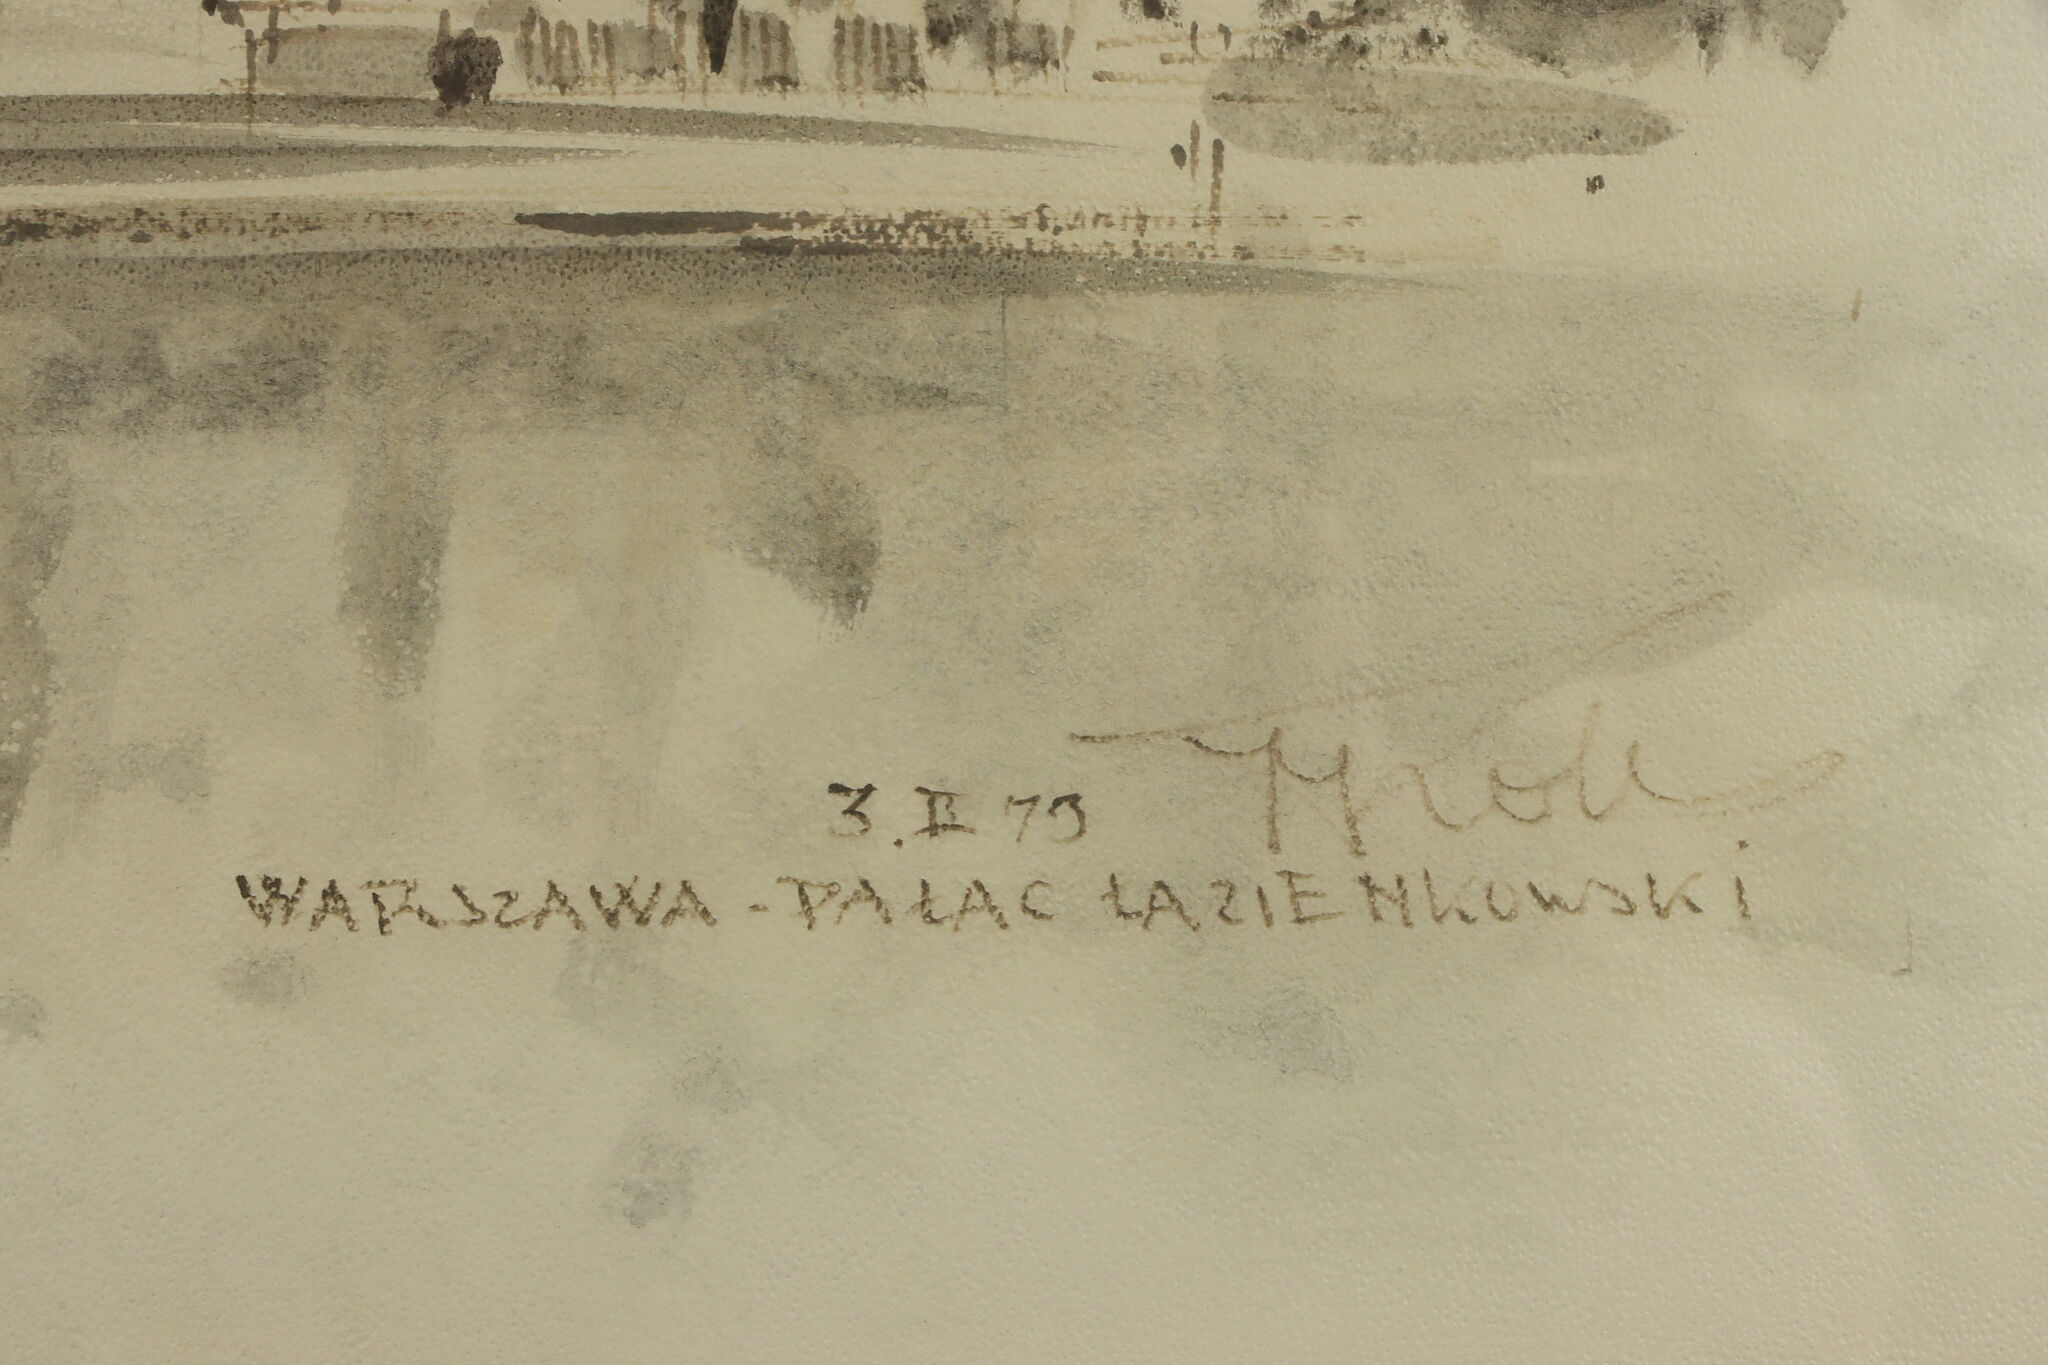 3.II 79
WARSZAWA - PAŁAC ŁAZIENKOWSKI